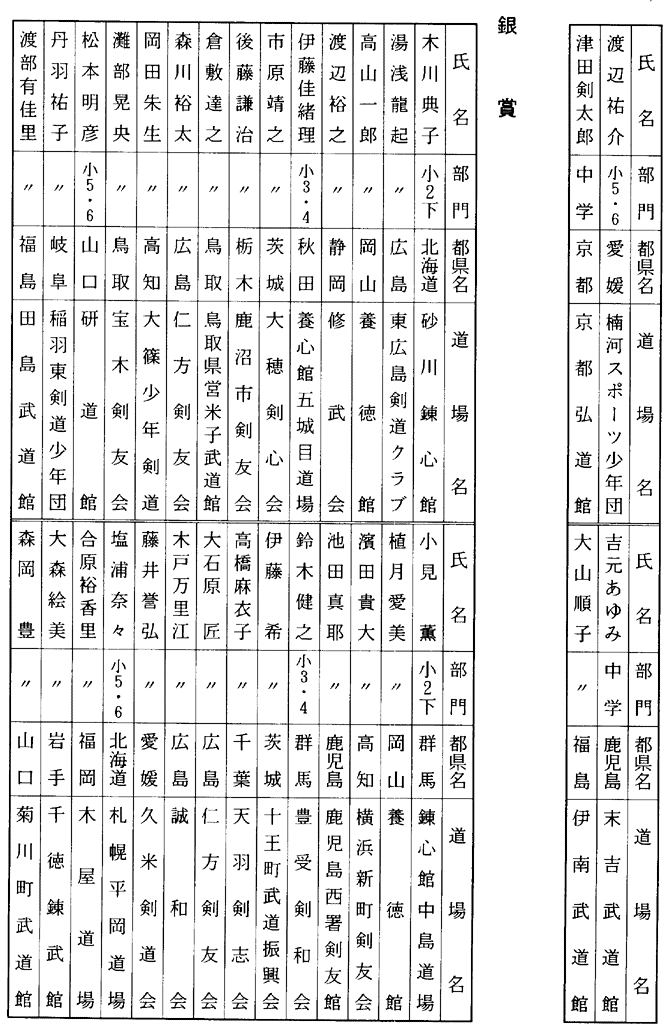 氏名 部門 都県名 道場名 氏名 部門 都県名 道場名
渡辺祐介 小5・6 愛媛 楠河スポーツ少年団 吉元あゆみ 中学 鹿児島 末吉武道館
津田剣太郎 中学 京都 京都弘道館 大山順子 〃 福島 伊南武道館
銀賞
氏名 部門 都県名 道場名 氏名 部門 都県名 道場名
木川典子 小2下 北海道 砂川錬心館 小見薫 小2下 群馬 錬心館中島道場
湯浅龍起 〃 広島 東広島剣道クラブ 植月愛美 〃 岡山 養徳館
高山一郎 〃 岡山 養徳館 濱田貴大 〃 高知 横浜新町剣友会
渡辺裕之 〃 静岡 修武会 池田真耶 〃 鹿児島 鹿児島西署剣友館
伊藤佳緒理 小3・4 秋田 養心館五城目道場 鈴木健之 小3・4 群馬 豊受剣和会
市原靖之 〃 茨城 大穂剣心会 伊藤希 〃 茨城 十王町武道振興会
後藤謙治 〃 栃木 鹿沼市剣友会 高橋麻衣子 〃 千葉 天羽剣志会
倉敷達之 〃 鳥取 鳥取県営米子武道館 大石原匠 〃 広島 仁方剣友会
森川裕太 〃 広島 仁方剣友会 木戸万里江 〃 広島 誠和会
岡田朱生 〃 高知 大篠少年剣道 藤井誉弘 〃 愛媛 久米剣道会
灘部晃央 〃 鳥取 宝木剣友会 塩浦奈々 小5・6 北海道 札幌平岡道場
松本明彦 小5・6 山口 研道館 合原裕香里 〃 福岡 木屋道場
丹羽祐子 〃 岐阜 稲羽東剣道少年団 大森絵美 〃 岩手 千徳錬武館
渡部有佳里 〃 福島 田島武道館 森岡豊 〃 山口 菊川町武道館